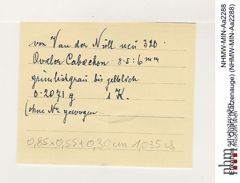 von / an der Nüll neu 320
Ovaler Cabochon 8·5:6 mm
grünlichgrau bis gelblich
0·2071 g 1 K.
(ohne Nr gewogen
0,85 x 0,55 x 0,30 cm 1,035 ct
NHMW-MIN-Aa2288
(NHMW-MIN-Aa2288)
nhm